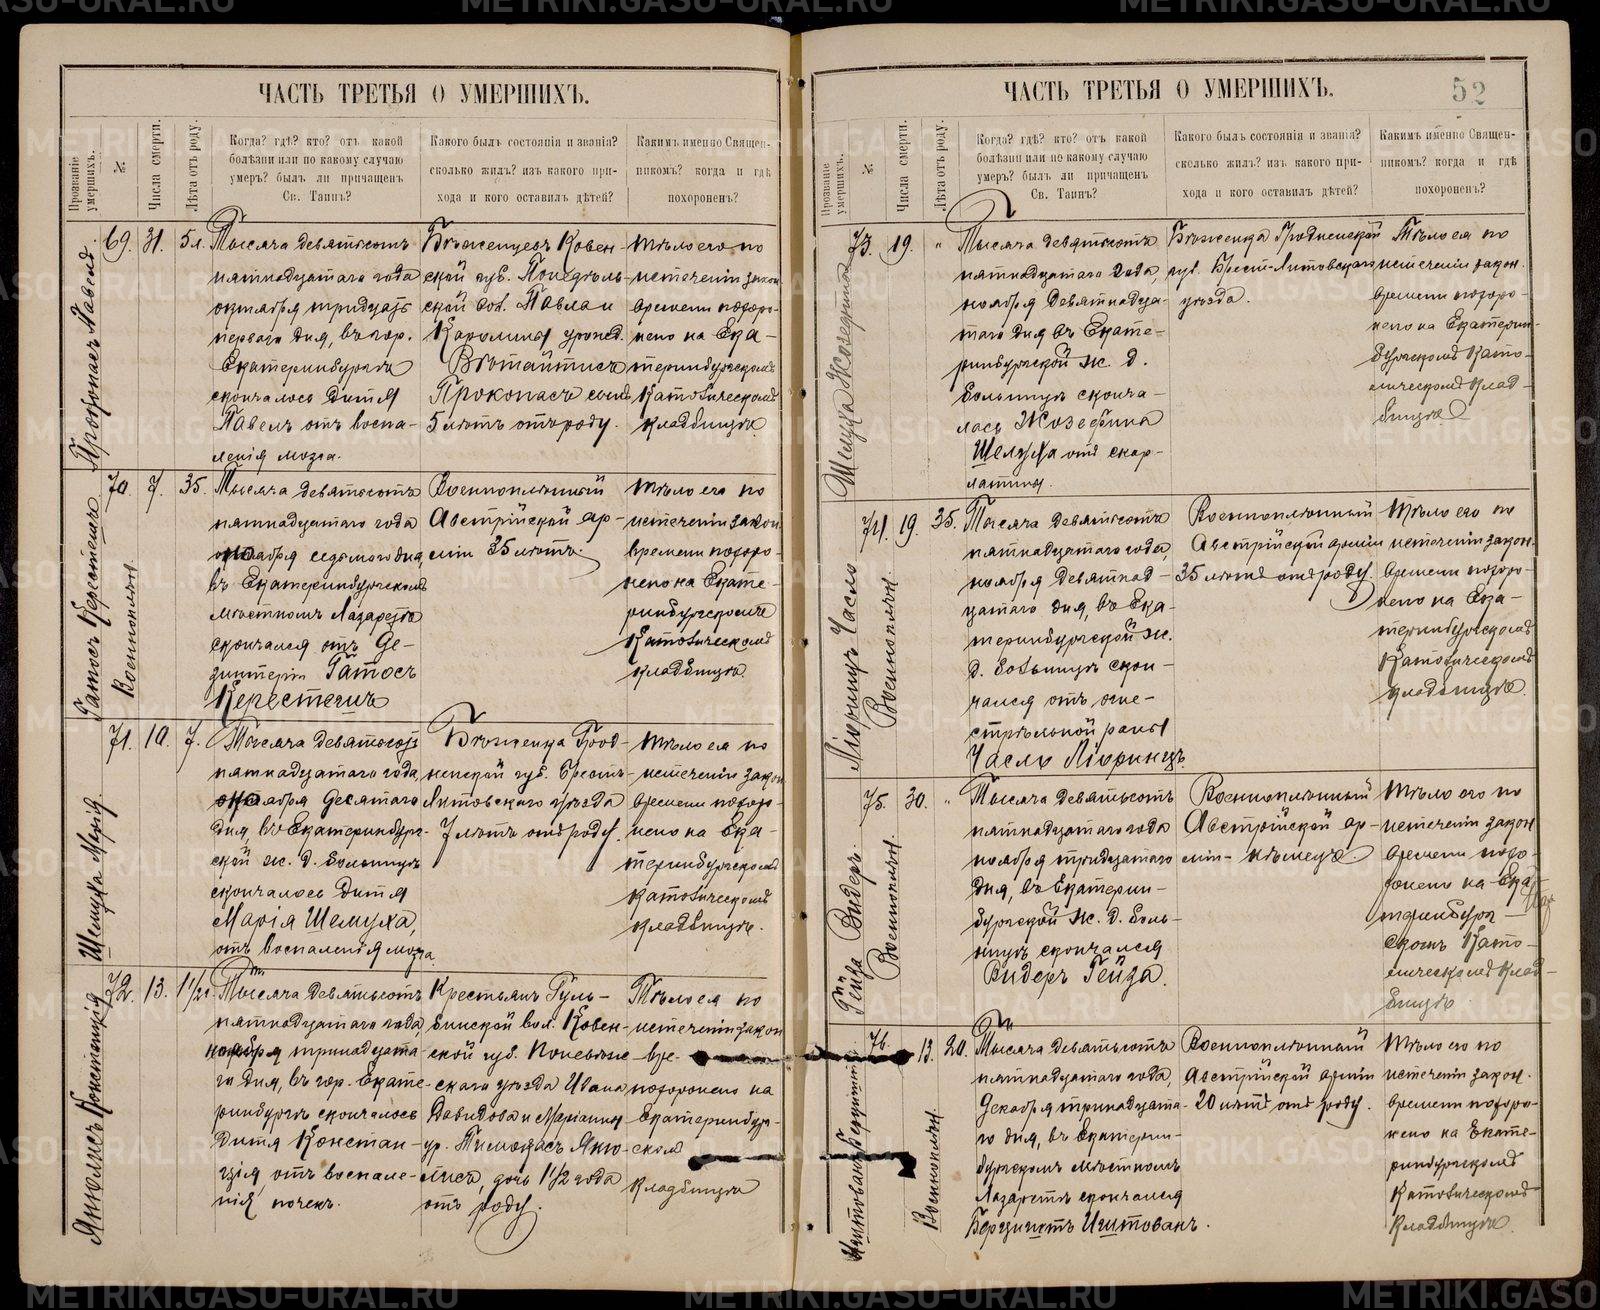 ЧАСТЬ ТРЕТЬЯ О УМЕРШИХЪ.
Прозваніе умершихъ.
№
Числа смерти.
Лѣта отъ роду.
Когда? гдѣ? кто? отъ какой
болѣзни или по какому случаю
умеръ? былъ ли причащенъ
Св. Таинъ?
Какого былъ состоянія и званія?
сколько жилъ? изъ какого при-
хода и кого оставилъ дѣтей?
Какимъ именно Священ-
никомъ? когда и гдѣ
похороненъ?
69. 31. 5 л.
Тысяча девятьсотъ
пятнадцатаго года
октября тридцать
перваго дня, въ гор.
Екатеринбургѣ
скончалось дитя
Павелъ отъ воспа-
ленія мозга.
Бѣженцевъ Ковен-
ской губ.
Павла и
Каролины урожд.
Прокопасъ сынъ
5 лѣтъ отъ роду.
Тѣло его по
истеченіи закон.
времени похоро-
нено на Ека-
теринбургскомъ
Католическомъ
кладбищѣ.
70. 7. 35.
Военноплѣн.
Тысяча девятьсотъ
пятнадцатаго года
ноября седьмого дня,
въ Екатеринбургскомъ
мѣстномъ Лазаретѣ
скончался отъ Де-
зинтеріи Гатосъ
Керестешъ
Военноплѣнный
Австрійской ар-
міи 35 лѣтъ.
Тѣло его по
истеченіи закон.
времени похоро-
нено на Екате-
ринбургскомъ
Католическомъ
кладбищѣ.
71. 10. 7.
Шемуха Марія.
Тысяча девятьсотъ
пятнадцатаго года,
ноября десятаго
дня, въ Екатеринбург-
ской ж. д. больницѣ
скончалось дитя
Марія Шемуха,
отъ воспаленія мозга.
Бѣженка Грод-
ненской губ. Брестъ-
Литовскаго уѣзда
7 лѣтъ отъ роду.
Тѣло ея по
истеченіи закон
времени похоро-
нено на Ека-
теринбургскомъ
католическомъ
кладбищѣ.
72. 13. 1 1/2 г.
Тысяча девятьсотъ
пятнадцатаго года,
ноября тринадцата-
го дня, въ гор. Екате-
ринбургѣ скончалось
дитя Констан-
ція, отъ воспале-
нія почекъ.
Крестьянъ
вол. Ковен-
ской губ.
скаго уѣзда Ивана
Давидова и Маріанны
ур.
дочь 1 1/2 года
отъ роду.
Тѣло ея по
истеченіи закон
вре-
похоронено на
Екатеринбур-
скомъ
кладбищѣ
ЧАСТЬ ТРЕТЬЯ О УМЕРШИХЪ.
52
Прозваніе умершихъ.
№
Числа смерти.
Лѣта отъ роду.
Когда? гдѣ? кто? отъ какой
болѣзни или по какому случаю
умеръ? былъ ли причащенъ
Св. Таинъ?
Какого былъ состоянія и званія?
сколько жилъ? изъ какого при-
хода и кого оставилъ дѣтей?
Какимъ именно Священ-
никомъ? когда и гдѣ
похороненъ?
73. 19. "
Тысяча девятьсотъ
пятнадцатаго года,
ноября девятнадца-
таго дня въ Екате-
ринбургской ж. д.
больницѣ сконча-
лась Жозефина
отъ скар-
латины.
Бѣженка Гродненской
губ. Брест-Литовскаго
уѣзда.
Тѣло ея по
истеченіи закон.
времени похоро-
нено на Екатерин-
бургскомъ Като-
лическомъ клад-
бищѣ
74. 19. 35.
Військоплѣн.
Тысяча девятьсотъ
пятнадцатаго года,
ноября девятнад-
цатаго дня, въ Ека-
теринбургской ж.
д. больницѣ скон-
чался отъ огне-
стрѣльной раны
Часло Ліоринцъ.
Военноплѣнный
Австрійской арміи
35 лѣтъ отъ роду
Тѣло его по
истеченіи закон.
времени похоро-
нено на Ека-
теринбургскомъ
Католическомъ
кладбищѣ.
75. 30. "
Гейда Видеръ.
Военноплѣн.
Тысяча девятьсотъ
пятнадцатаго года
ноября тридцатаго
дня, въ Екатерин-
бургской ж. д. боль-
ницѣ скончался
Видеръ Гейда.
Военноплѣнный
Австрійской ар-
міи - нѣмецъ.
Тѣло его по
истеченіи закон
времени похо-
ронено на Ека-
теринбург-
скомъ Като-
лическомъ клад-
бищѣ.
76. 13. 20.
Военноплѣн.
Тысяча девятьсотъ
пятнадцатаго года,
Декабря тринадцата-
го дня, въ Екатерин-
бургскомъ мѣстномъ
Лазаретѣ скончался
Иштованъ.
Военноплѣнный
Австрійской арміи
20 лѣтъ отъ роду.
Тѣло его по
истеченіи закон.
времени похоро-
нено на Екате-
ринбургскомъ
Католическомъ
кладбищѣ.
METRIKI.GASO-URAL.RU